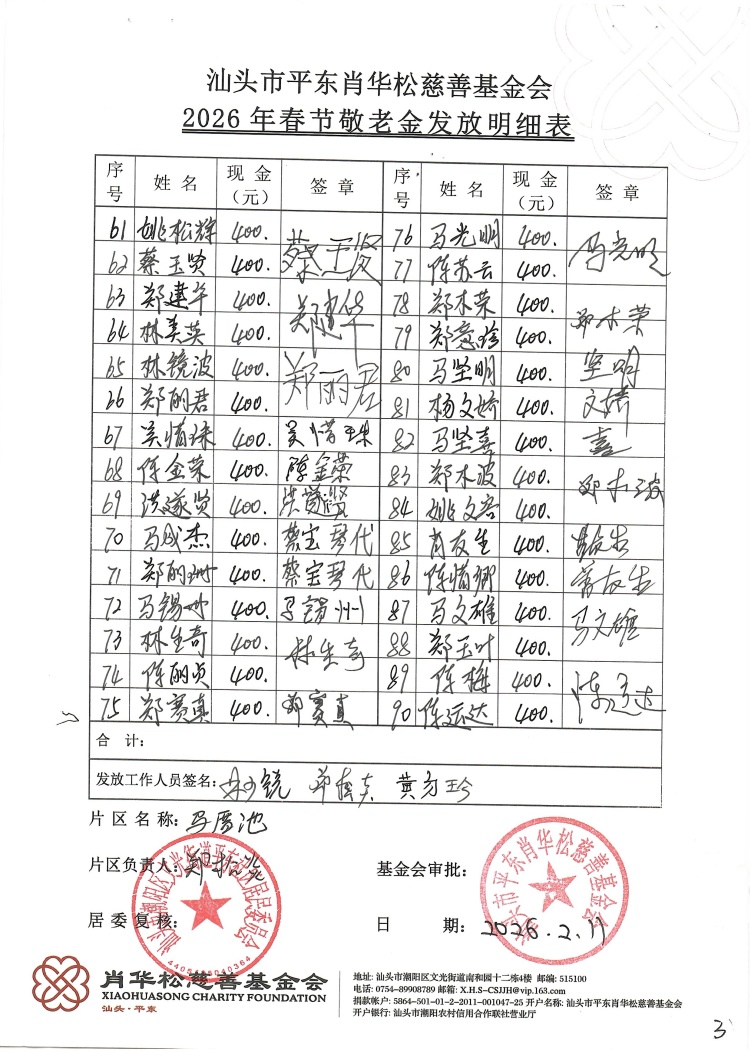 汕头市平东肖华松慈善基金会
2026年春节敬老金发放明细表
序号 姓名 现金（元） 签章 序号 姓名 现金（元） 签章
61 姚松辉 400. 蔡玉贤 76 马光明 400. 马光明
62 蔡玉贤 400. 77 陈苏云 400.
63 郑建华 400. 郑建华 78 郑木荣 400. 郑木荣
64 林美英 400. 79 郑意珍 400.
65 林镜波 400. 郑丽君 80 马坚明 400. 坚明
66 郑丽君 400. 81 杨文娇 400. 文
67 吴惜珠 400. 吴惜珠 82 马坚喜 400. 喜
68 陈金荣 400. 陈金荣 83 郑木波 400. 郑木波
69 洪遂贤 400. 洪遂贤 84 姚文容 400.
70 马成杰 400. 蔡宝琴代 85 肖友生 400. 肖友生
71 郑丽珊 400. 蔡宝琴代 86 陈惜卿 400. 肖友生
72 马锡州 400. 马锡州 87 马文雄 400. 马文雄
73 林生奇 400. 林生奇 88 郑玉叶 400.
74 陈丽贞 400. 89 陈梅 400. 陈运达
75 郑赛真 400. 郑赛真 90 陈运达 400.
合计：
发放工作人员签名：
片区名称：马厝池
片区负责人： 基金会审批：
居委复核： 日期：2026.2.11
汕头市潮阳区文光街道平东社区居民委员会
汕头市平东肖华松慈善基金会
肖华松慈善基金会
XIAOHUASONG CHARITY FOUNDATION
汕头·平东
地址: 汕头市潮阳区文光街道南和园十二栋4楼 邮编: 515100
电话: 0754-89908789 邮箱: X.H.S-CSJJH@vip.163.com
捐款帐户: 5864-501-01-2-2011-001047-25 开户名称: 汕头市平东肖华松慈善基金会
开户银行: 汕头市潮阳农村信用合作联社营业厅
3